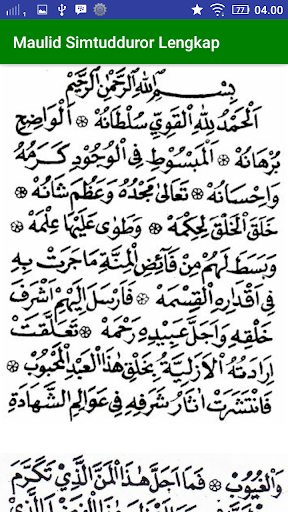 04.00
Maulid Simtudduror Lengkap
بِسْمِ اللهِ الرَّحْمٰنِ الرَّحِيْمِ
اَلْحَمْدُ لِلّٰهِ الْقَوِيِّ سُلْطَانُهْ ۞ اَلْوَاضِحِ
بُرْهَانُهْ ۞ اَلْمَبْسُوْطِ فِي الْوُجُوْدِ كَرَمُهُ
وَاِحْسَانُهْ ۞ تَعَالٰى مَجْدُهُ وَعَظُمَ شَانُهْ ۞
خَلَقَ الْخَلْقَ لِحِكْمَهْ ۞ وَطَوٰى عَلَيْهَا عِلْمَهْ ۞
وَبَسَطَ لَهُمْ مِنْ فَآئِضِ الْمِنَّةِ مَاجَرَتْ بِهِ
فِيْ اَقْدَارِهِ الْقِسْمَهْ ۞ فَاَرْسَلَ اِلَيْهِمْ اَشْرَفَ
خَلْقِهِ وَاَجَلَّ عَبِيْدِهِ رَحْمَهْ ۞ تَعَلَّقَتْ
اِرَادَتُهُ الْاَزَلِيَّةُ بِخَلْقِ هٰذَا الْعَبْدِ الْمَحْبُوْبِ ۞
فَانْتَشَرَتْ اٰثَارُ شَرَفِهِ فِيْ عَوَالِمِ الشَّهَادَةِ
وَالْغُيُوْبِ ۞ فَمَا اَجَلَّ هٰذَا الْمَنَّ الَّذِيْ تَكَرَّمَ